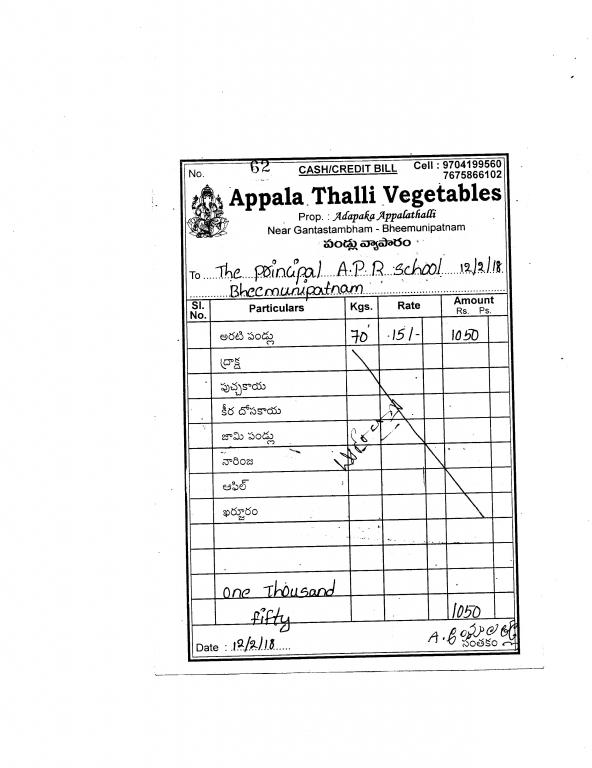 No. 62 CASH/CREDIT BILL Cell : 9704199560
7675866102
Appala Thalli Vegetables
Prop. : Adapaka Appalathalli
Near Gantastambham - Bheemunipatnam
పండ్లు వ్యాపారం
To The principal A.P.R school 12/2/18
Bheemunipatnam
Sl. No. Particulars Kgs. Rate Amount Rs. Ps.
అరటి పండ్లు 70 15/- 1050
ద్రాక్ష
పుచ్చకాయ
కీర దోసకాయ
జామి పండ్లు
నారింజ
ఆపిల్
ఖర్జూరం
one Thousand
fifty 1050
Date : 12/2/18 సంతకం